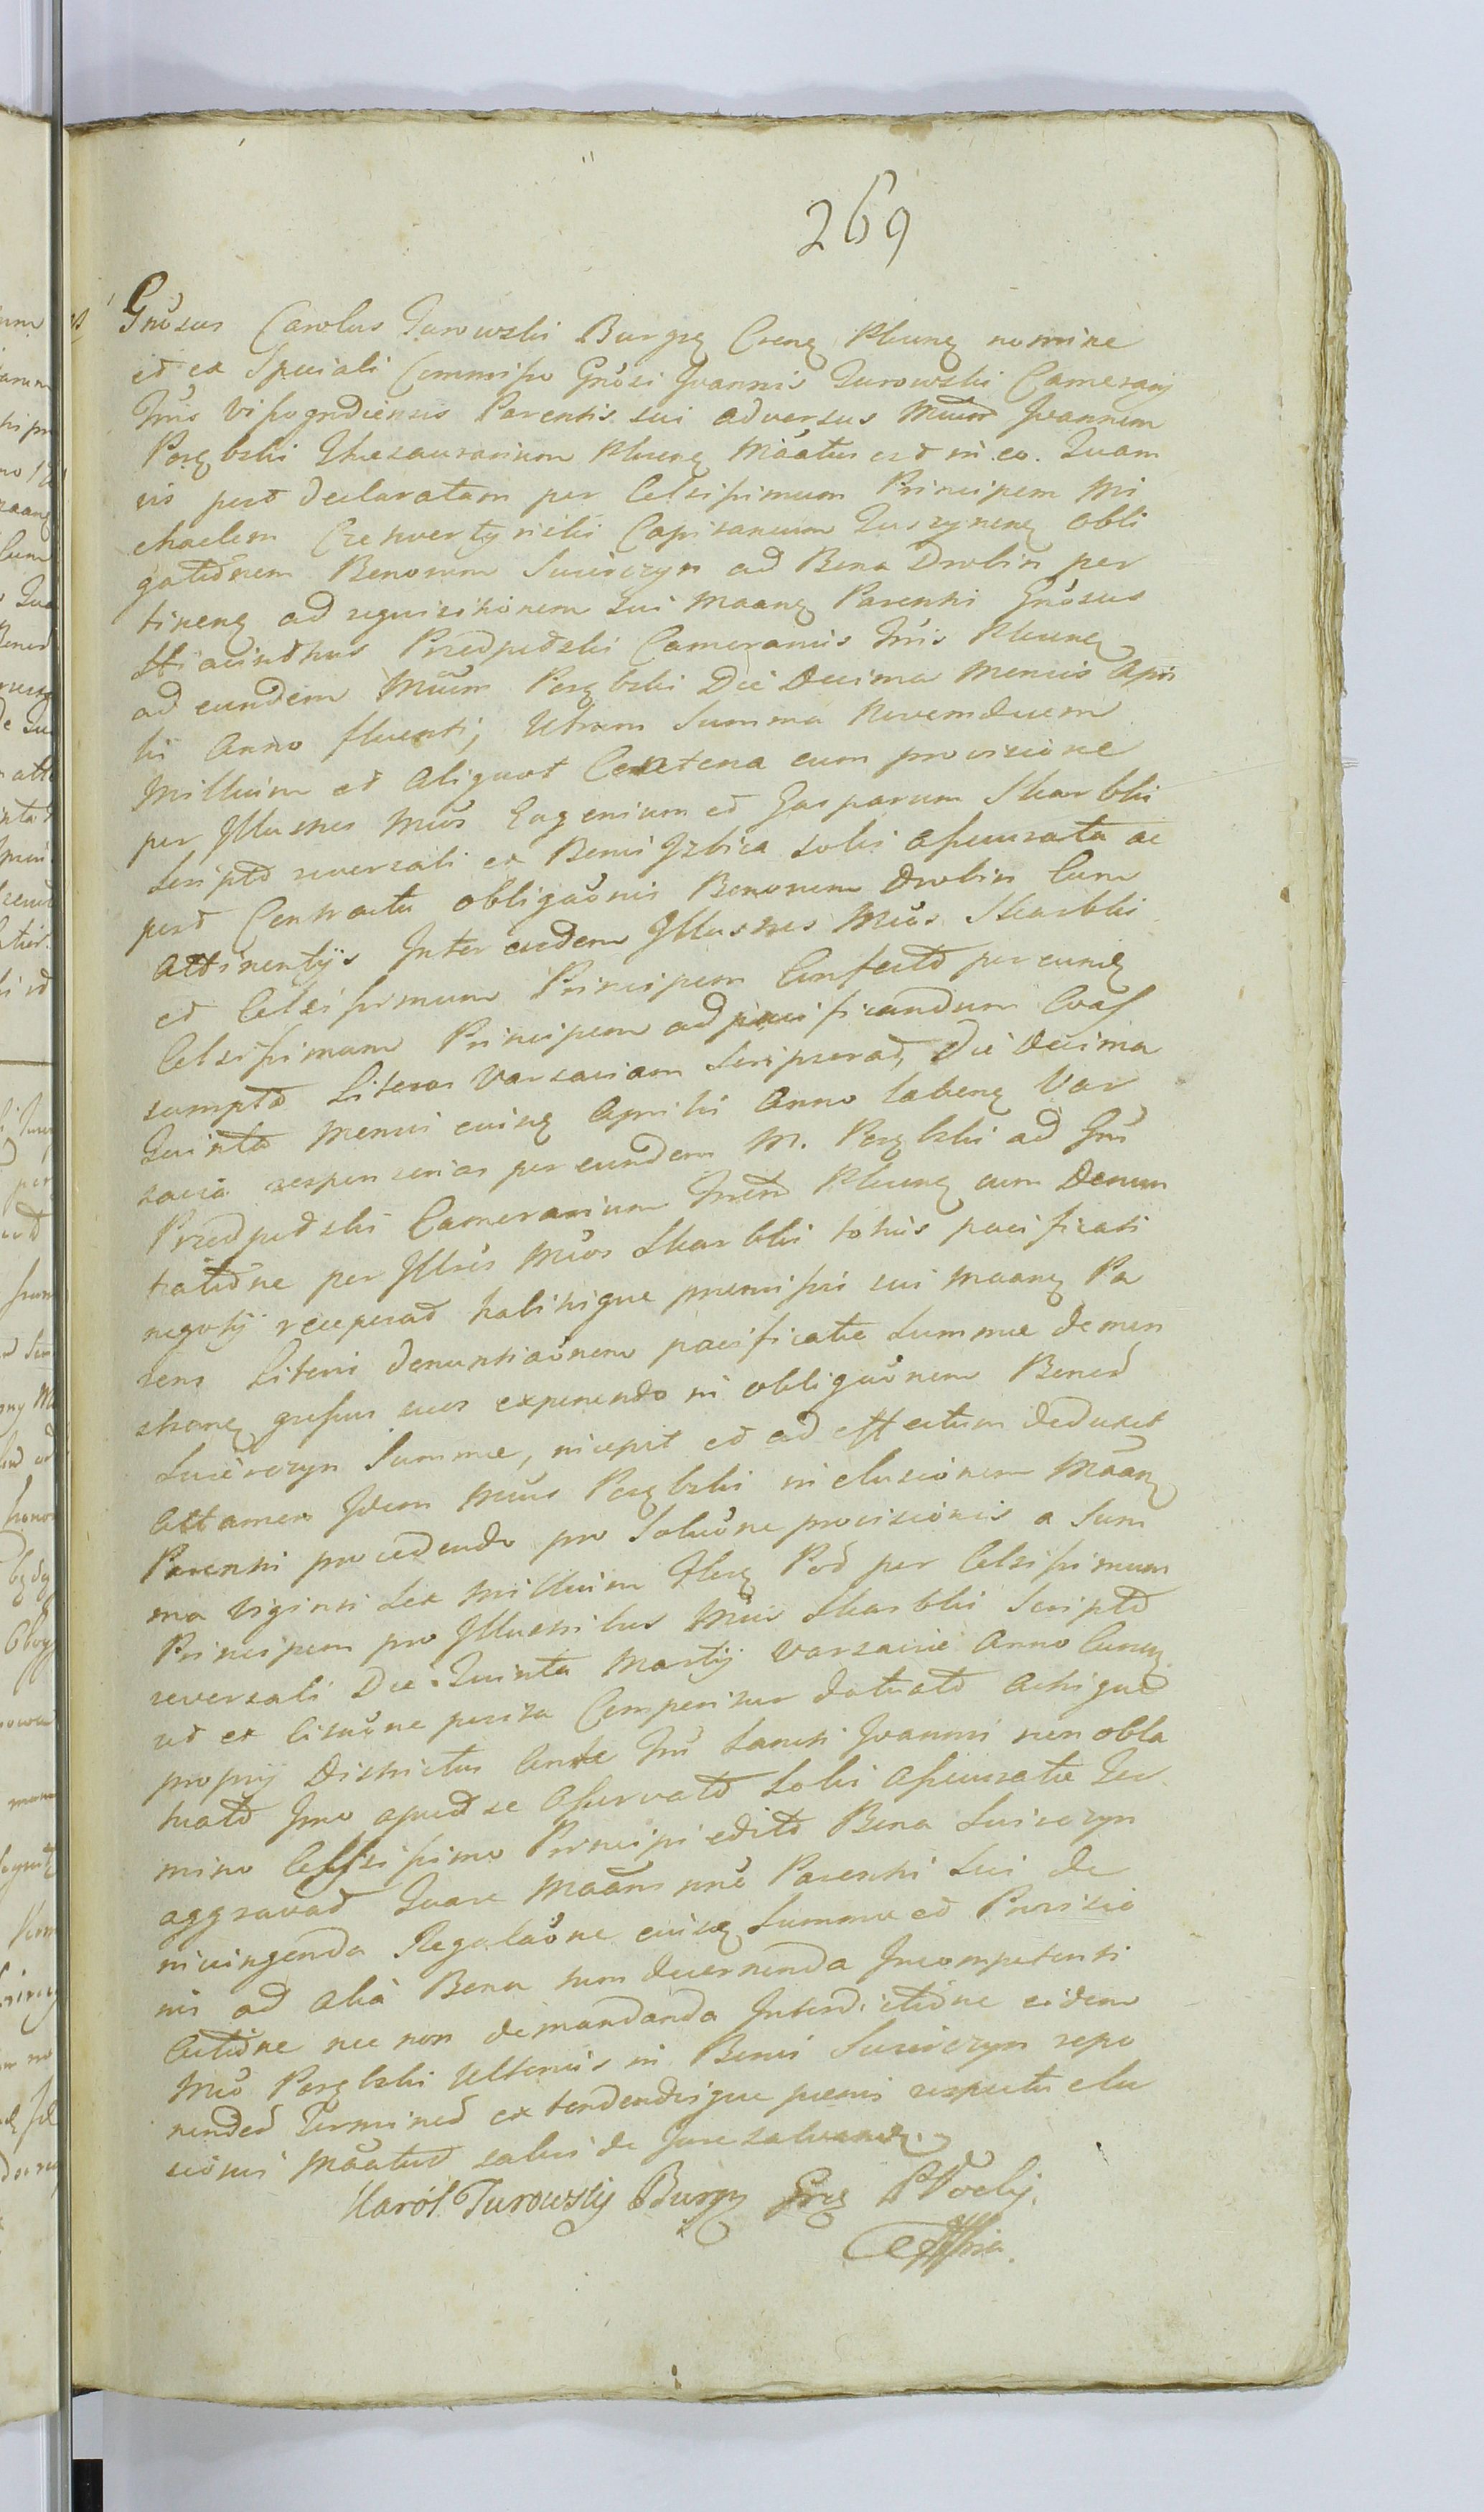 269
Gnosus Carolus Turowski Burgrę Crenę Plocenę nomine
et ex Speciali Commisso Gnosi Joannis Turowski Camerarij
Trris Vissogrdiensis Parentis sui adversus Mum Joannem
Porębski Thesaurarium Plocenę Maatus est in eo. Quam
vis post declaratam per Celsissimum Principem Mi
chaelem Czetwertynski Capitaneum Duszynenę obli
gationem Bonorum Swierczyn ad Bona Drobin per
tinenę ad requisitionem sui maanę Parentis Gnosus
Hiacinthus Przedpełski Camerarius Trris Plocenę
ad eundem Mum Porębski Die Decima Mensis Apri
lis Anno fluenti, Utrum Summa Novemdecem
Millium et Aliquot Centena cum provisione
per Illustres Mcos Eugenium et Gasparum Skarbki
Scripto reversali ex Bonis Izbica solvi assecurata ac
post Contractu obligaonis Bonorum Drobin Cum
Attinentÿs Inter eosdem Illustres Mcos Skarbki
et Celsissimum Principem Confecto per eundę
Celsissimum Principem ad pacificandum Coas
sumpta Literas Varsaviam Scripserat, Die Decima
Quinta Mensis eiusę Aprilis Anno labenę Var
savia responsorias per eundem M. Porębski ad Gnu
Przedpełski Camerarium Trrem Plocenę cum Denun
tiatione per Illres Mcos Skarbki totius pacificati
negotij receperat habitisque præmissis sui maanę Pa
rens Literis denuntiaonem pacificatæ Summæ demon
stranę gressus suos exponendo in obligaonem Bonoru
Swierczyn Summæ, incepit et ad effectum deduxit
Attamen Idem Mcus Porębski in elusionem Maanę
Parentis procedendo pro Soluone provisionis a Sum
ma Viginti Sex Millium Flor Pol per Celsissimum
Principem pro Illustribus Mcis Skarbki Scripto
reversali Die Quinta Martij Varsaviæ Anno Curenę
ut ex Citaone perisa Comperitur datuato Actique
proprij Districtus Ante Trm Sancti Joannis non obla
tuato Imo apud se Asservato Solvi assecuratæ Ter
mino Celsissimo Principi edito Bona Swierczyn
aggravat Quare Maans nne Parentis Sui de
iniungenda Regulaone eiusę Summæ et Provisio
nis ad alia Bona tum decernenda Incompetenti
Actione nec non demandanda Interdictione eidem
Mco Porębski Ulterius in Bonis Swierczyn repo
nendo Termino extendendisque pænis respectu elu
sionis Maatur salvis de Jure salvandis
Karól Turowsky Burgr Grę PPocky